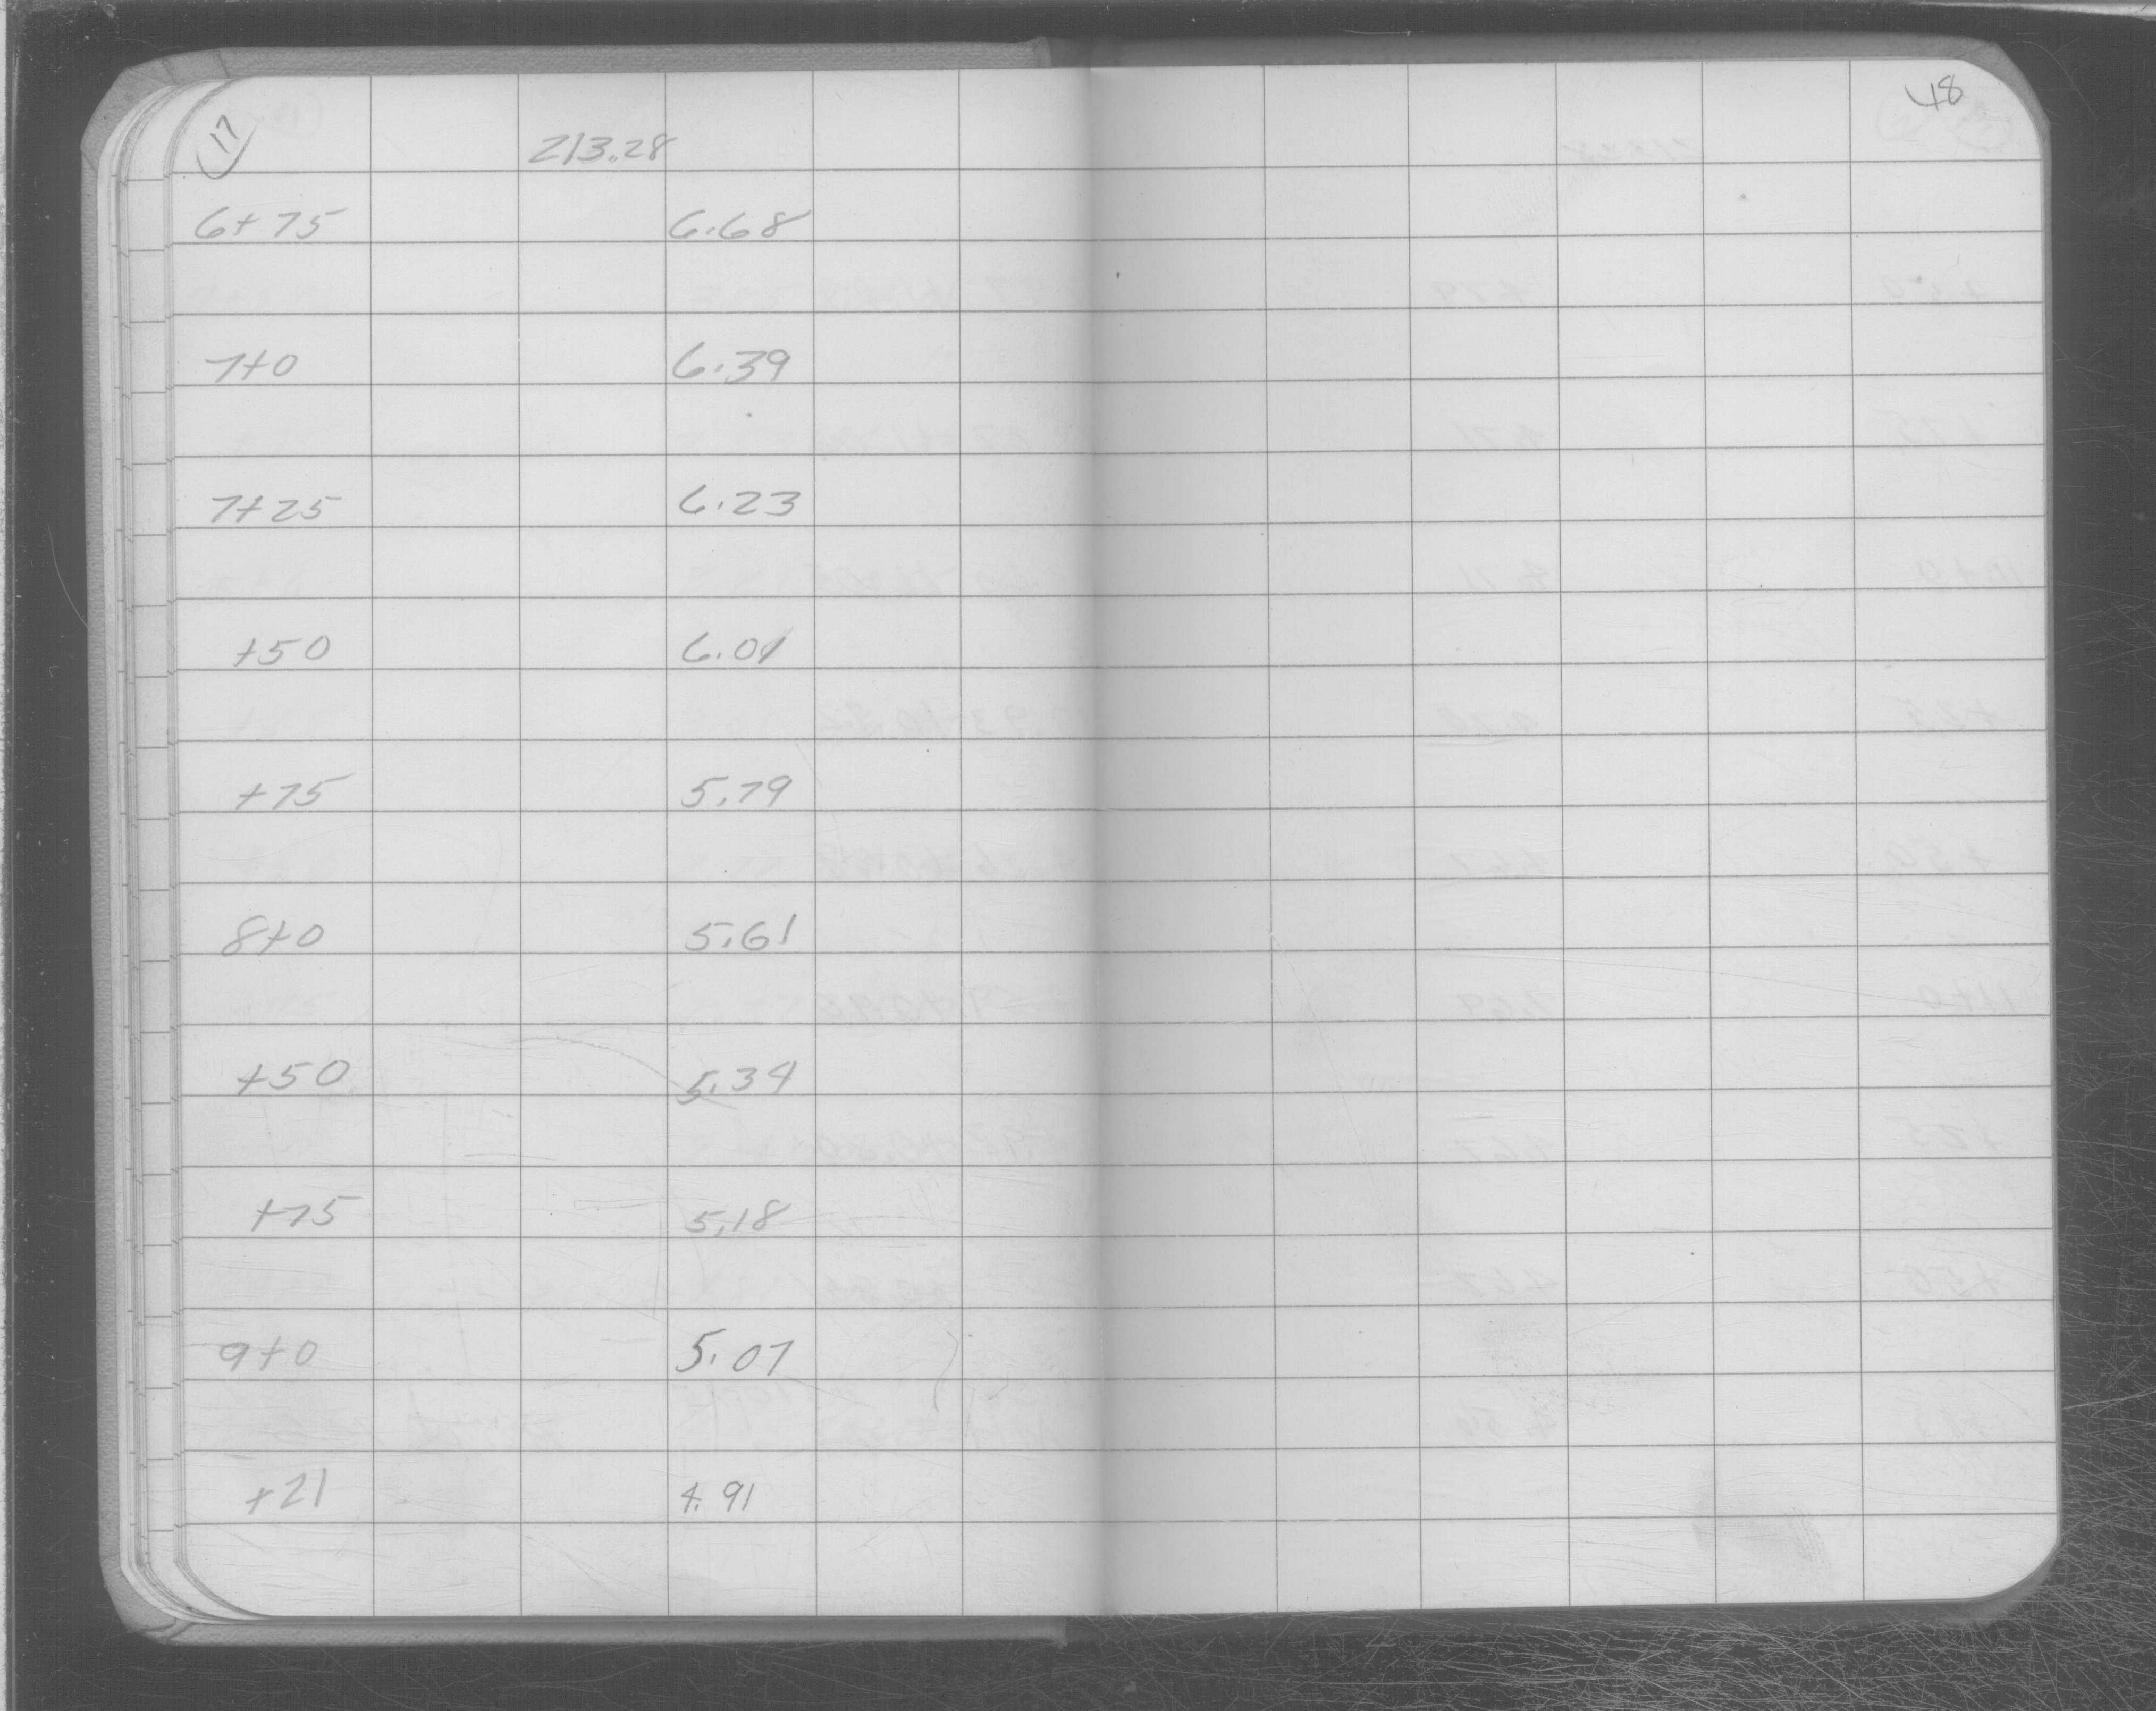 17
213.28
6+75 6.68
7+0 6.39
7+25 6.23
+50 6.01
+75 5.79
8+0 5.61
+50 5.34
+75 5.18
9+0 5.07
+21 4.91
48